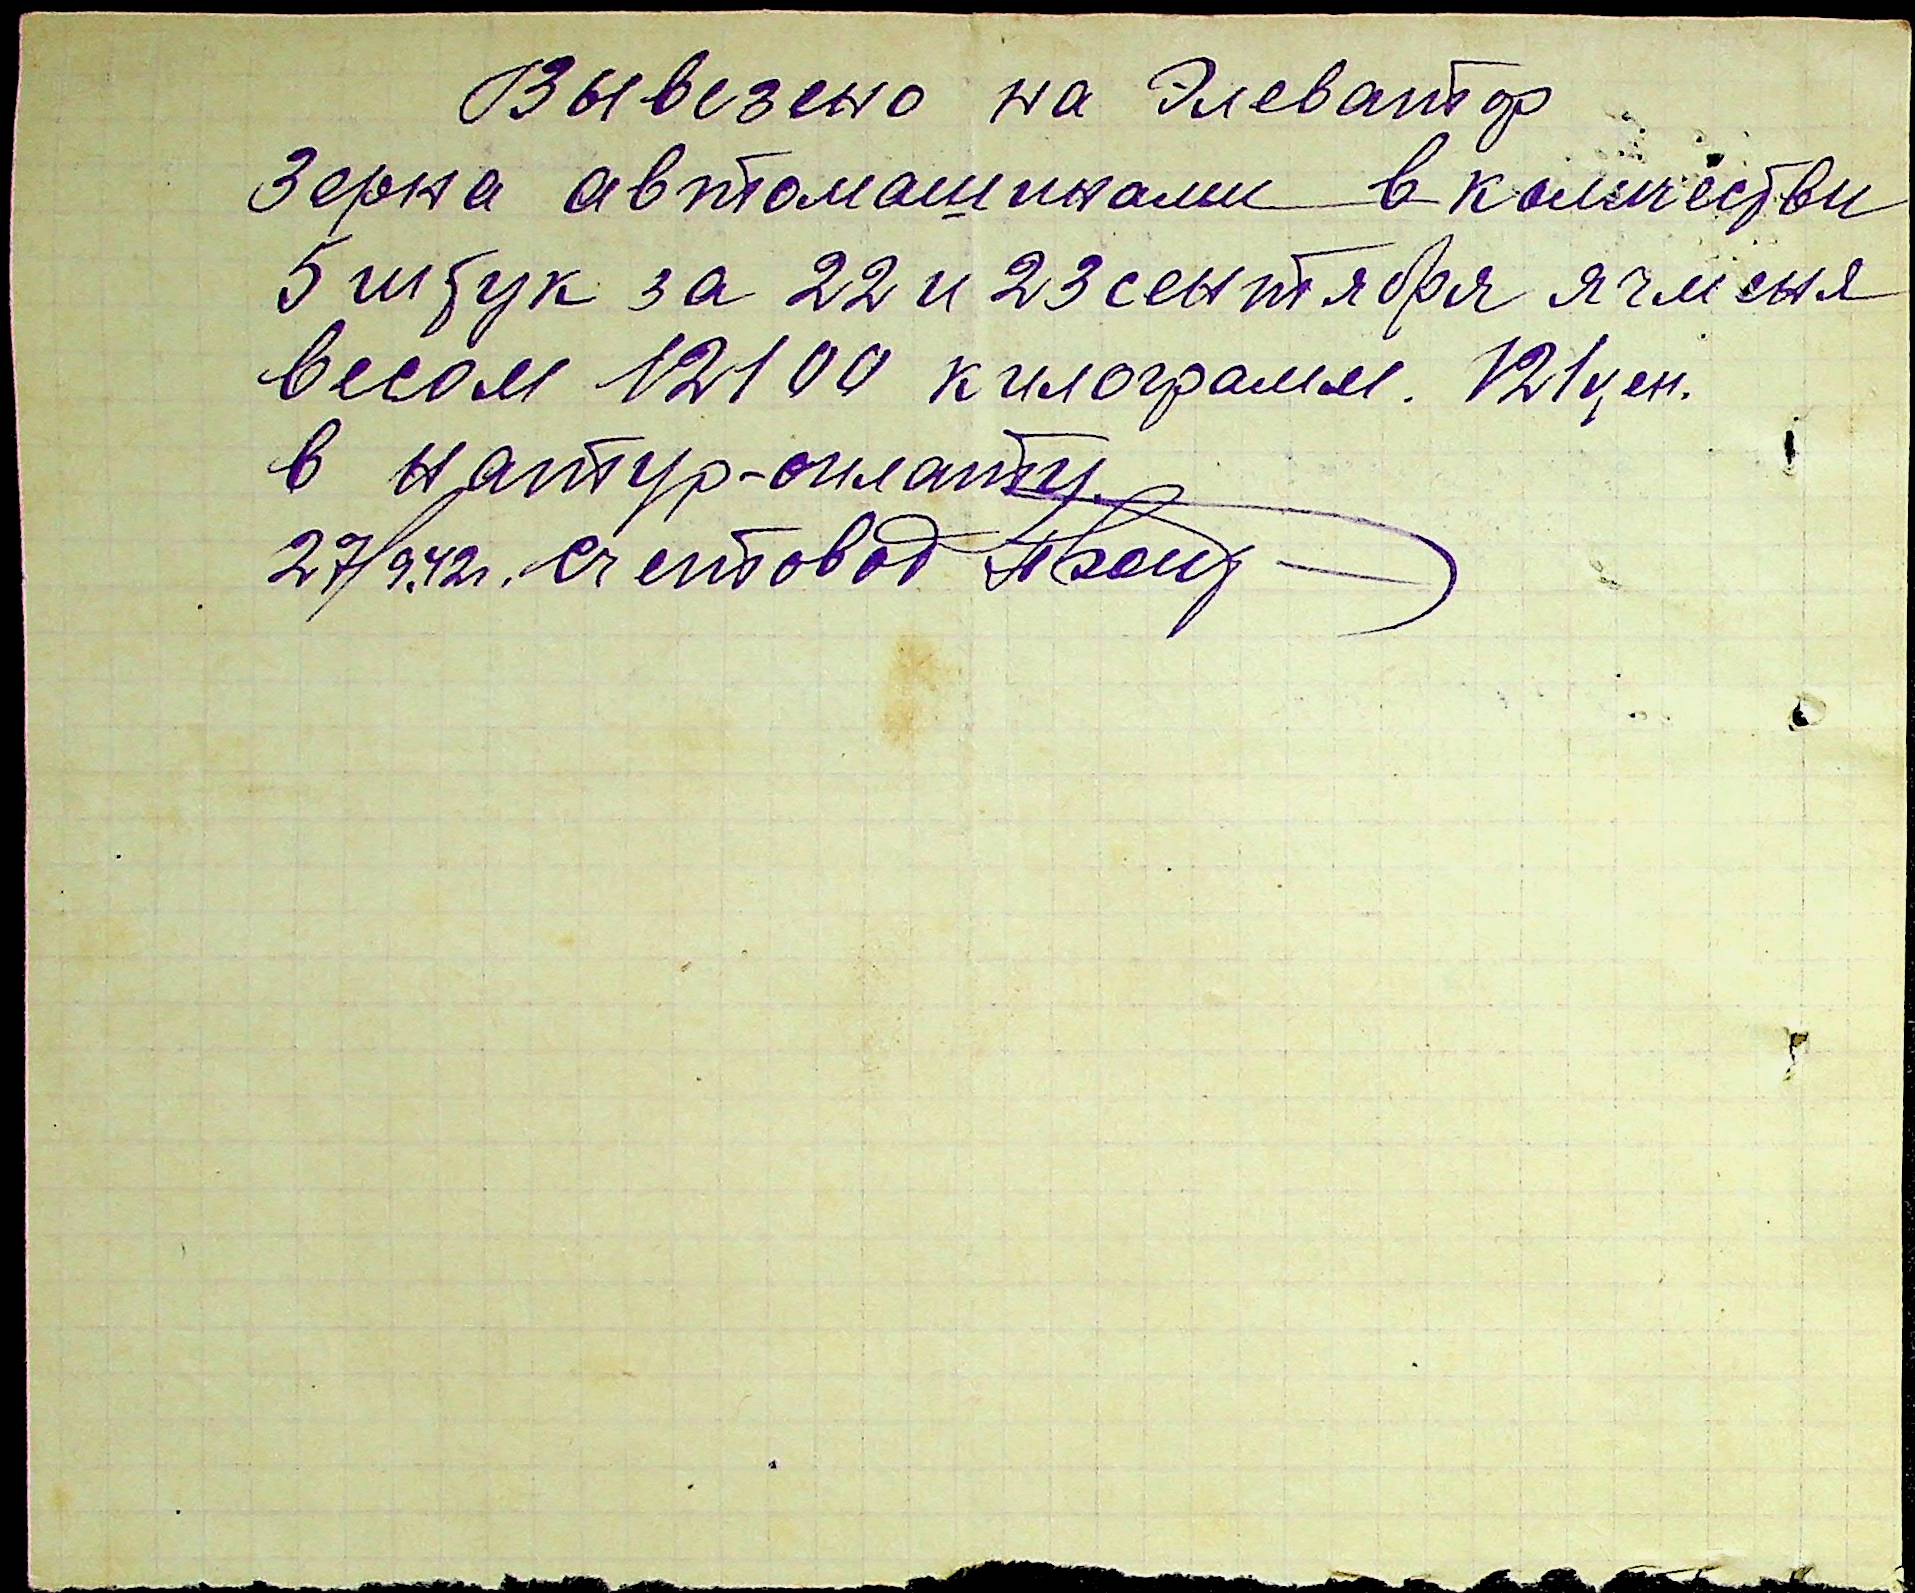 Вывезено на Элеватор
Зерна автомашинами в количестви
5 штук за 22 и 23 сентября ячменя
весом 12100 килограмм. 121 цен.
в натур-оплату.
27/9.42г. Счетовод